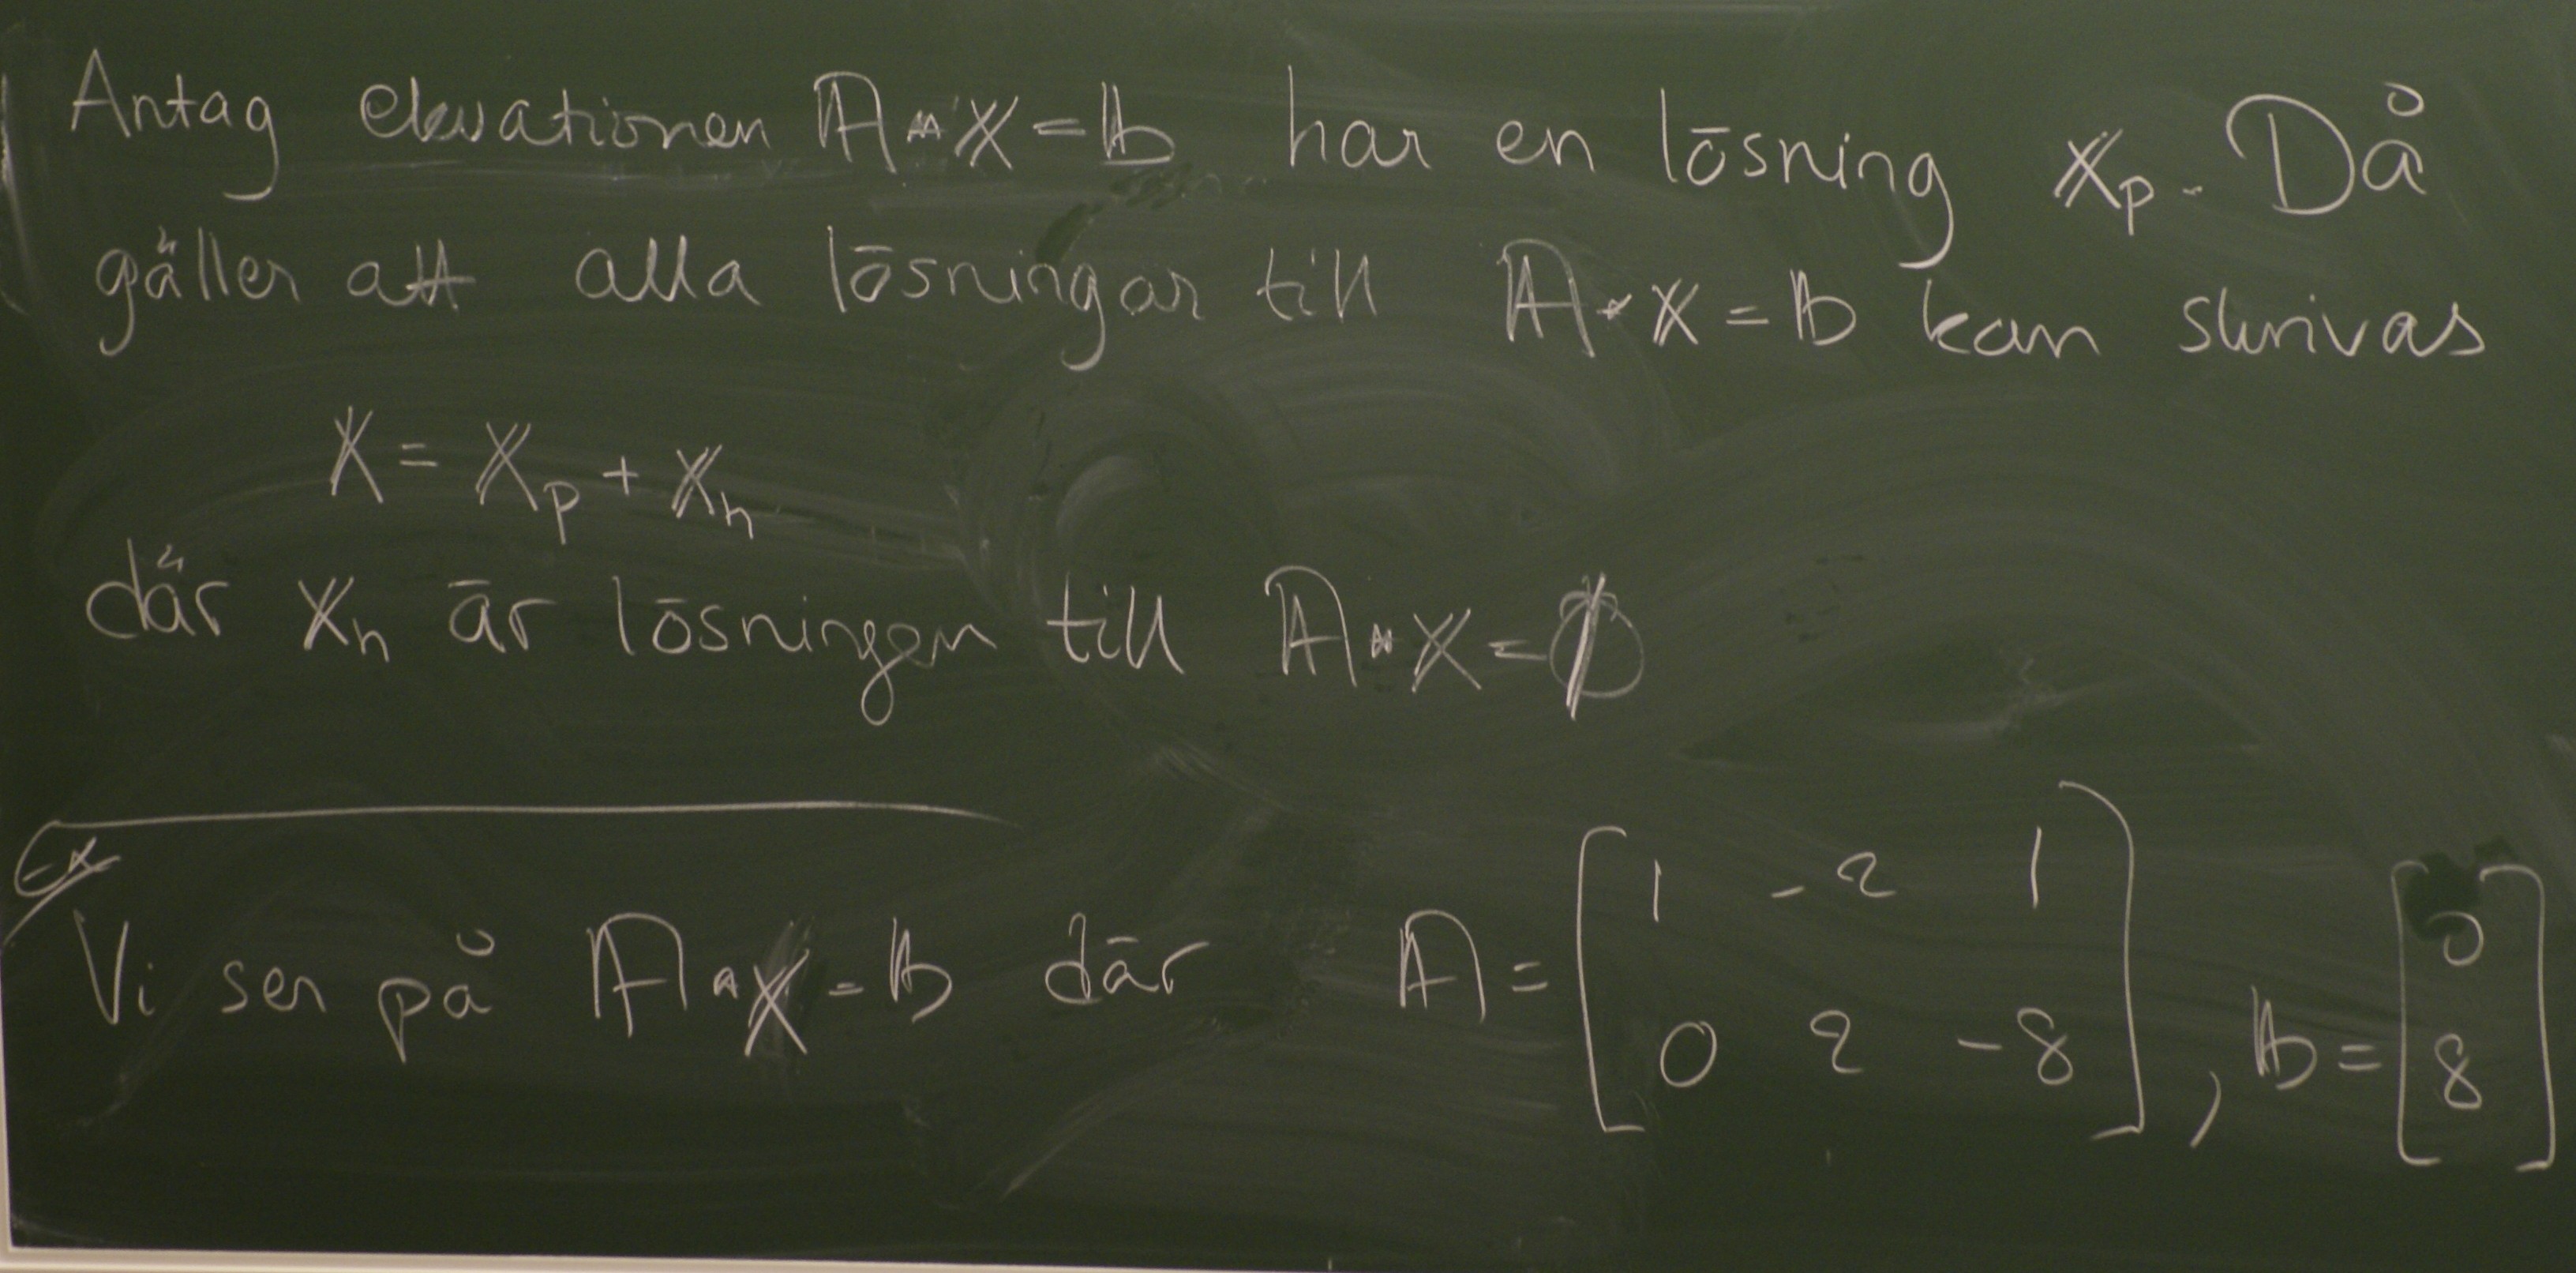 Antag ekvationen A·x=b har en lösning xp. Då
gäller att alla lösningar till A·x=b kan skrivas
x = xp + xh
där xh är lösningen till A·x=0
Ex
Vi ser på A·x=b där A=[1 -2 1
0 2 -8], b=[0
8]